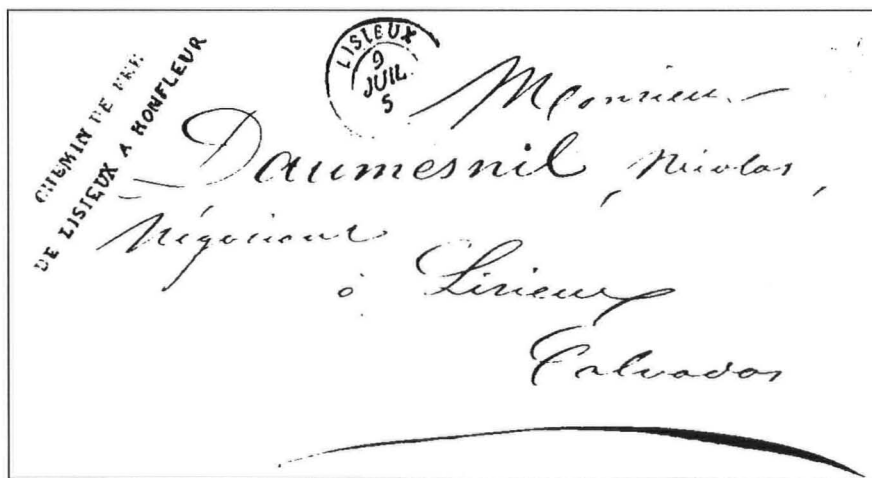 CHEMIN DE FER
DE LISIEUX A HONFLEUR
LISIEUX
9
JUIL
5
Monsieur
Daumesnil, Nicolas,
Négociant
à Lisieux
Calvados